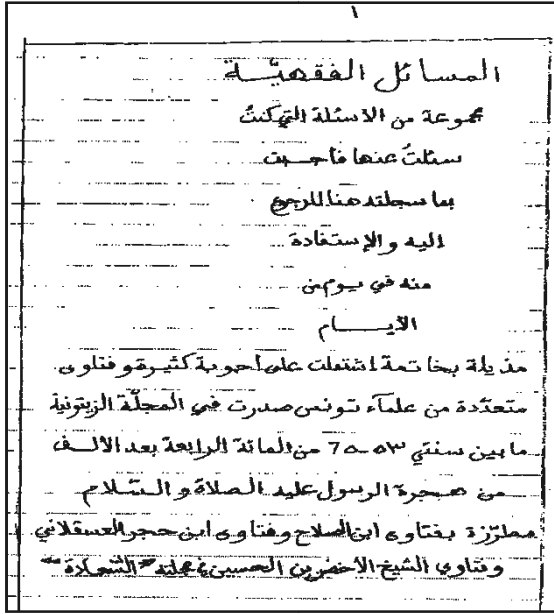 ١
المسائل الفقهيّـة
مجموعة من الاسئلة التي كنتُ
سئلتُ عنها فأجبت
بما سجلته هنا للرجوع
اليه والإستفادة
منه في يوم من
الأيـــام
مذيلة بخاتمة اشتملت على أجوبة كثيرة وفتاوى
متعدّدة من علمآء تونس صدرت في المجلّة الزيتونية
ما بين سنتي ٥٣-75 من المائة الرابعة بعد الألف
من هجرة الرسول عليه الصلاة والسّلام
مطرّزة بفتاوى ابن الصلاح وفتاوى ابن حجر العسقلاني
وفتاوي الشيخ الأخضر بن الحسين في مجلته "السّعادة"